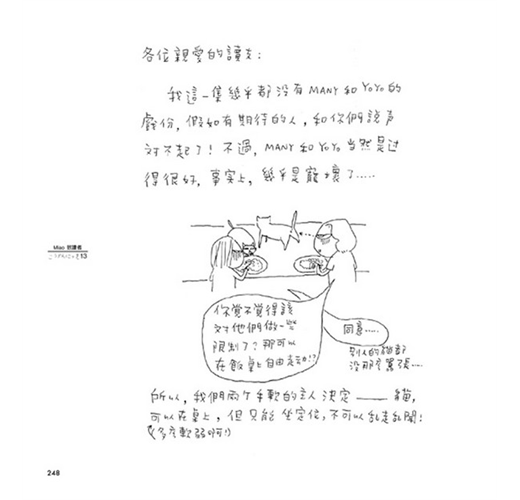 各位親愛的讀友：
我這一隻幾乎都沒有 MANY 和 YoYo 的
戲份，假如有期待的人，和你們說声
对不起了！不過，MANY 和 YoYo 当然是过
得很好，事实上，幾乎是寵壞了.....
Miao 明讀者
13
你觉不觉得該
对他們做一些
限制了？那可以
在飯桌上自由走动!?
同意.....
別人的貓都
沒那麼囂張...
所以，我們兩个手軟的主人決定——貓，
可以在桌上，但只能坐定位，不可以乱走乱鬧！
(多麼軟弱啊!)
248